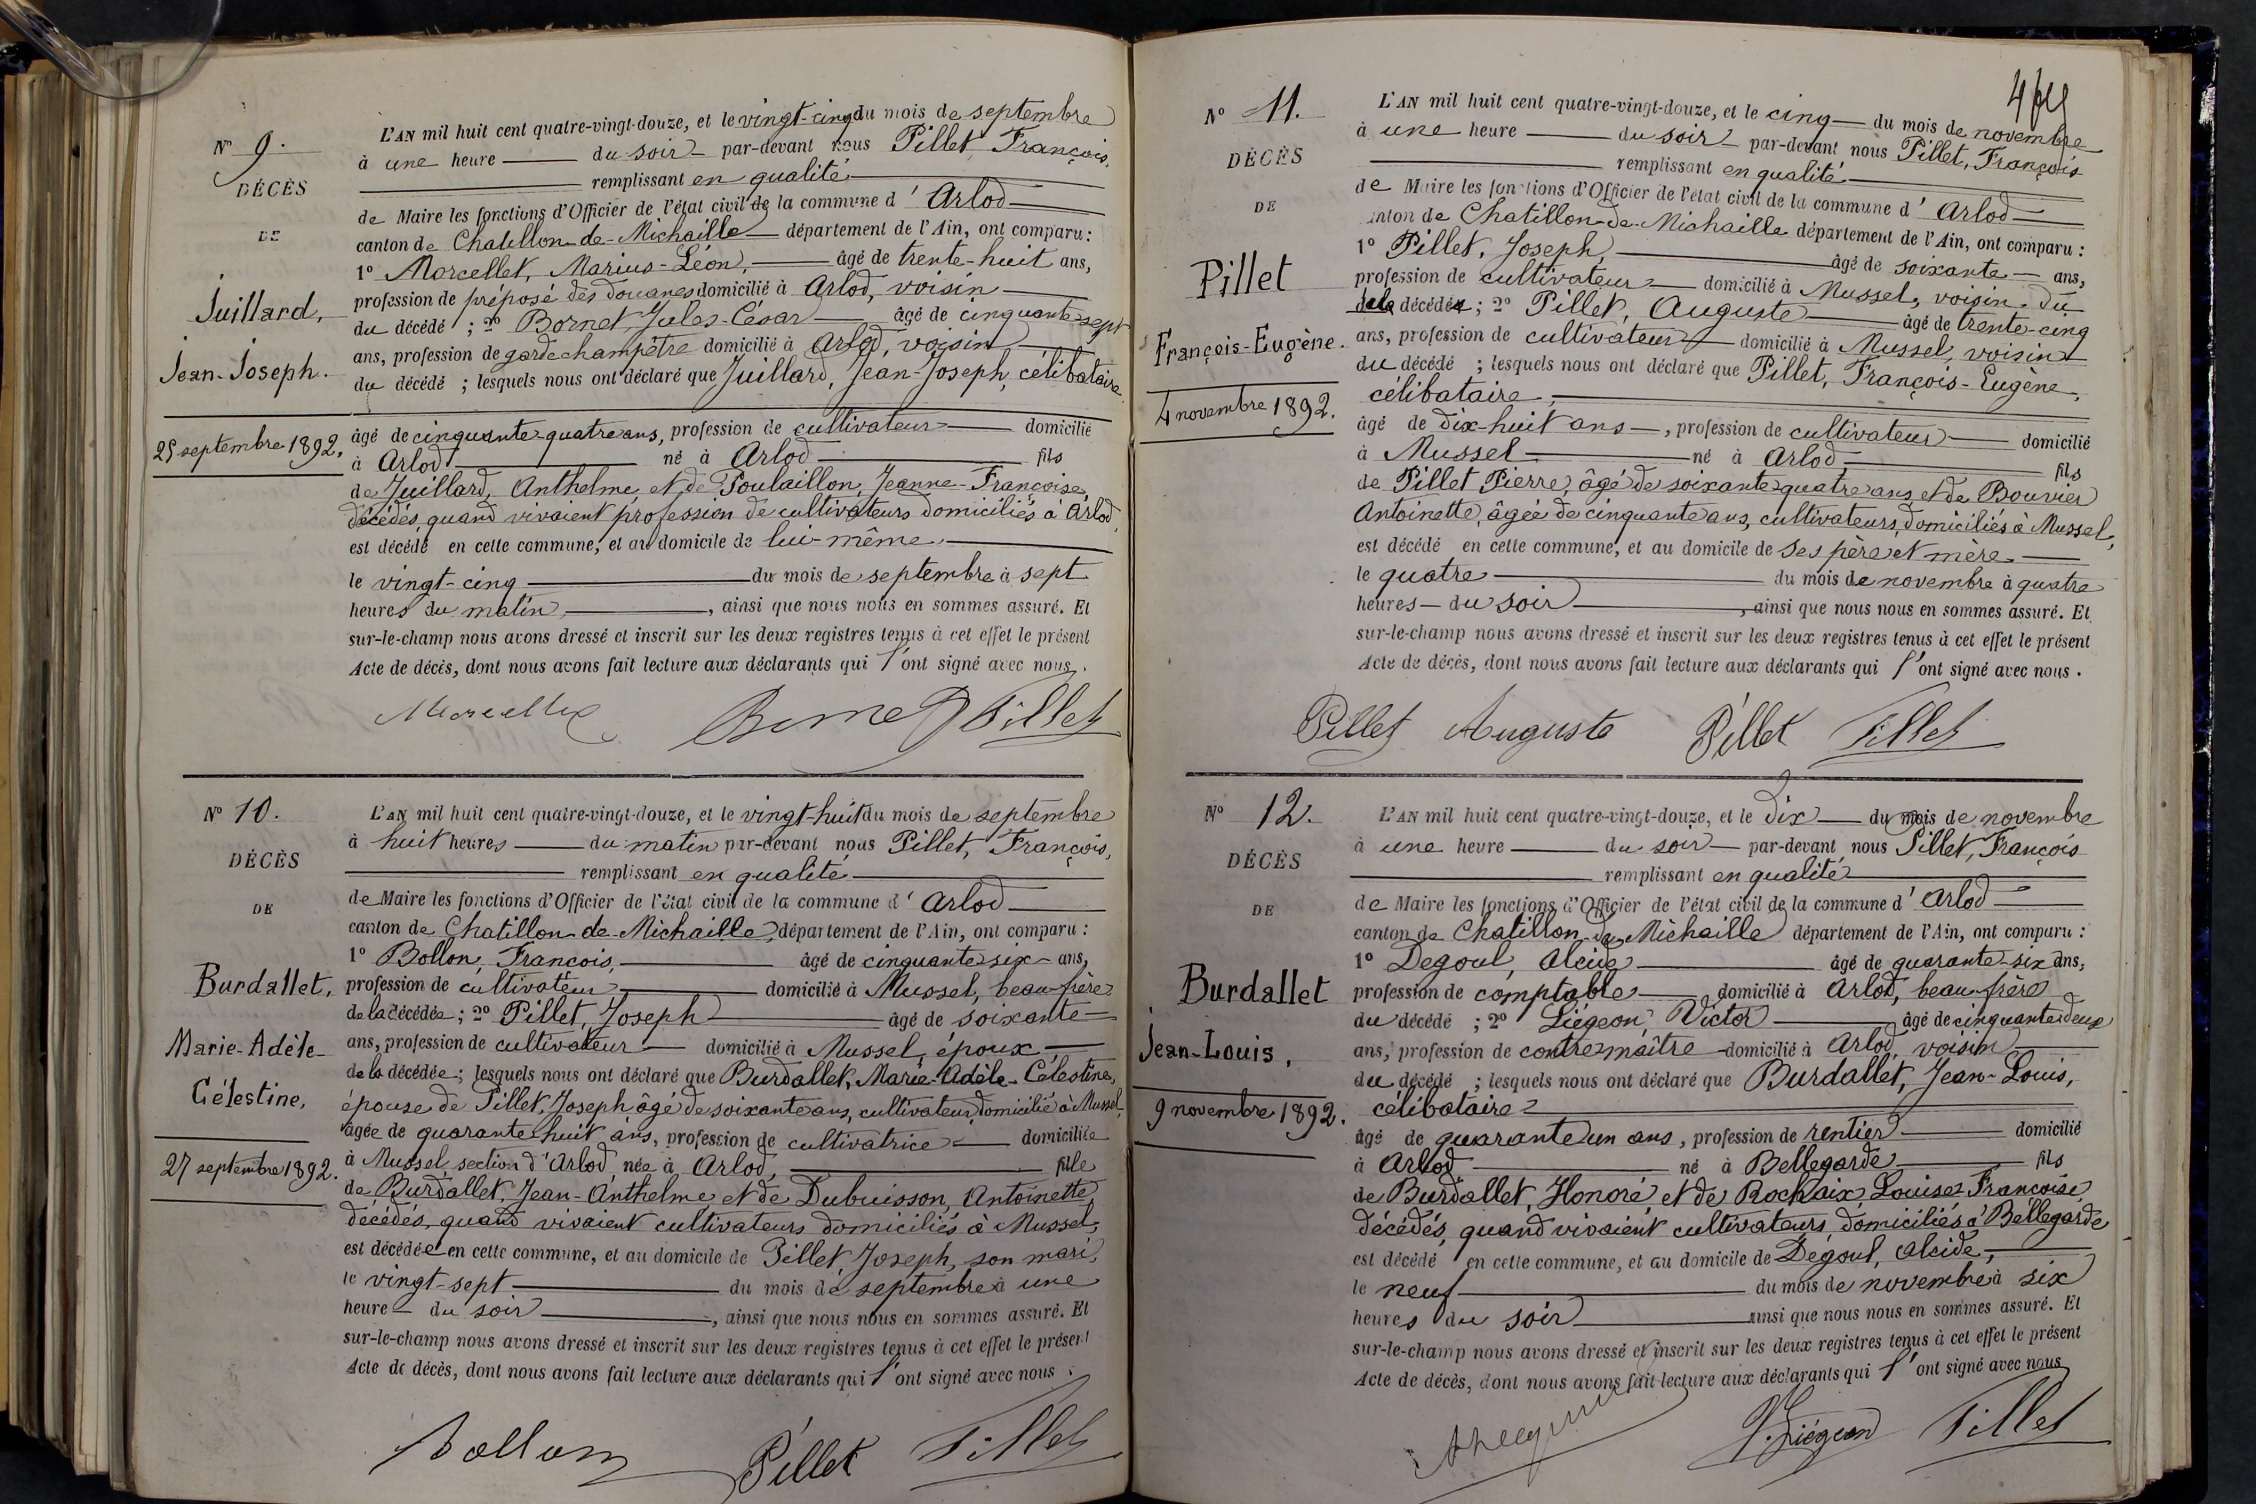 N° 9.
DÉCÈS
DE
Juillard,
Jean-Joseph.
25 septembre 1892.
L'AN mil huit cent quatre-vingt-douze, et le vingt-cinq du mois de septembre
à une heure du soir par-devant nous Pillet, François,
remplissant en qualité
de Maire les fonctions d'Officier de l'état civil de la commune d'Arlod
canton de Chatillon-de-Michaille département de l'Ain, ont comparu :
1° Marcellet, Marius-Léon, âgé de trente-huit ans,
profession de préposé des douanes domicilié à Arlod, voisin
du décédé ; 2° Bornet, Jules-César âgé de cinquante-sept
ans, profession de garde champêtre domicilié à Arlod, voisin
du décédé ; lesquels nous ont déclaré que Juillard, Jean-Joseph, célibataire
âgé de cinquante-quatre ans, profession de cultivateur domicilié
à Arlod né à Arlod fils
de Juillard, Anthelme, et de Poulaillon, Jeanne-Françoise,
décédés, quand vivaient profession de cultivateurs domiciliés à Arlod,
est décédé en cette commune, et au domicile de lui-même,
le vingt-cinq du mois de septembre à sept
heures du matin, ainsi que nous nous en sommes assuré. Et
sur-le-champ nous avons dressé et inscrit sur les deux registres tenus à cet effet le présent
Acte de décès, dont nous avons fait lecture aux déclarants qui l'ont signé avec nous.
Marcellet Bornet Pillet
N° 10.
DÉCÈS
DE
Burdallet,
Marie-Adèle-
Célestine,
27 septembre 1892.
L'AN mil huit cent quatre-vingt-douze, et le vingt-huit du mois de septembre
à huit heures du matin par-devant nous Pillet, François,
remplissant en qualité
de Maire les fonctions d'Officier de l'état civil de la commune d'Arlod
canton de Chatillon-de-Michaille, département de l'Ain, ont comparu :
1° Bollon, François, âgé de cinquante-six ans,
profession de cultivateur domicilié à Mussel, beau-frère
de la décédée ; 2° Pillet, Joseph âgé de soixante
ans, profession de cultivateur domicilié à Mussel, époux
de la décédée ; lesquels nous ont déclaré que Burdallet, Marie-Adèle-Célestine,
épouse de Pillet, Joseph âgé de soixante ans, cultivateur domicilié à Mussel,
âgée de quarante-huit ans, profession de cultivatrice domiciliée
à Mussel, section d'Arlod née à Arlod, fille
de Burdallet, Jean-Anthelme et de Dubuisson, Antoinette,
décédés, quand vivaient cultivateurs domiciliés à Mussel,
est décédée en cette commune, et au domicile de Pillet, Joseph, son mari,
le vingt-sept du mois de septembre à une
heure du soir, ainsi que nous nous en sommes assuré. Et
sur-le-champ nous avons dressé et inscrit sur les deux registres tenus à cet effet le présent
Acte de décès, dont nous avons fait lecture aux déclarants qui l'ont signé avec nous.
Bollon Pillet Pillet
N° 11.
DÉCÈS
DE
Pillet
François-Eugène.
4 novembre 1892.
L'AN mil huit cent quatre-vingt-douze, et le cinq du mois de novembre
à une heure du soir par-devant nous Pillet, François
remplissant en qualité
de Maire les fonctions d'Officier de l'état civil de la commune d'Arlod
canton de Chatillon-de-Michaille département de l'Ain, ont comparu :
1° Pillet, Joseph, âgé de soixante ans,
profession de cultivateur domicilié à Mussel, voisin du
décédé ; 2° Pillet, Auguste âgé de trente-cinq
ans, profession de cultivateur domicilié à Mussel, voisin
du décédé ; lesquels nous ont déclaré que Pillet, François-Eugène,
célibataire,
âgé de dix-huit ans, profession de cultivateur domicilié
à Mussel né à Arlod, fils
de Pillet Pierre, âgé de soixante-quatre ans et de Bouvier
Antoinette, âgée de cinquante ans, cultivateurs, domiciliés à Mussel,
est décédé en cette commune, et au domicile de ses père et mère
le quatre du mois de novembre à quatre
heures du soir, ainsi que nous nous en sommes assuré. Et
sur-le-champ nous avons dressé et inscrit sur les deux registres tenus à cet effet le présent
Acte de décès, dont nous avons fait lecture aux déclarants qui l'ont signé avec nous.
Pillet Auguste Pillet Pillet
N° 12.
DÉCÈS
DE
Burdallet
Jean-Louis,
9 novembre 1892.
L'AN mil huit cent quatre-vingt-douze, et le dix du mois de novembre
à une heure du soir par-devant nous Pillet, François
remplissant en qualité
de Maire les fonctions d'Officier de l'état civil de la commune d'Arlod
canton de Chatillon-de-Michaille département de l'Ain, ont comparu :
1° Degoul, Alcide âgé de quarante-six ans,
profession de comptable domicilié à Arlod, beau-frère
du décédé ; 2° Liégeon, Victor âgé de cinquante-deux
ans, profession de contremaître domicilié à Arlod, voisin
du décédé ; lesquels nous ont déclaré que Burdallet, Jean-Louis,
célibataire
âgé de quarante-un ans, profession de rentier domicilié
à Arlod né à Bellegarde fils
de Burdallet, Honoré et de Rochaix Louise Françoise,
décédés, quand vivaient cultivateurs, domiciliés à Bellegarde
est décédé en cette commune, et au domicile de Degoul, Alcide,
le neuf du mois de novembre à six
heures du soir ainsi que nous nous en sommes assuré. Et
sur-le-champ nous avons dressé et inscrit sur les deux registres tenus à cet effet le présent
Acte de décès, dont nous avons fait lecture aux déclarants qui l'ont signé avec nous
V. Liégeon Pillet